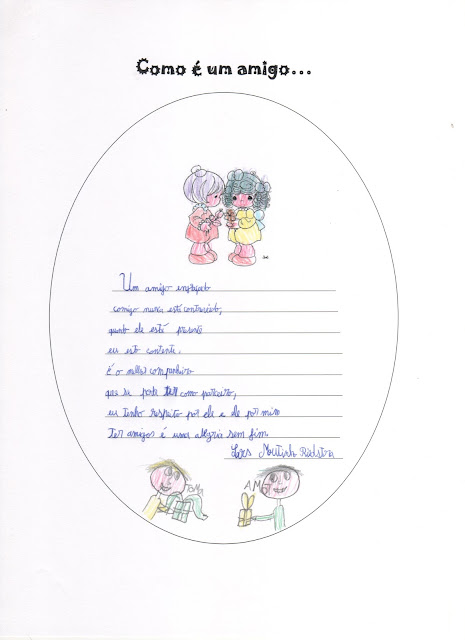 Como é um amigo...
Um amigo engraçado
comigo nunca está contrariado,
quando ele está presente
eu estou contente.
É o melhor companheiro
que se pode ter como parceiro,
eu tenho respeito por ele e ele por mim
Ter amigos é uma alegria sem fim.
Moutinho
AM